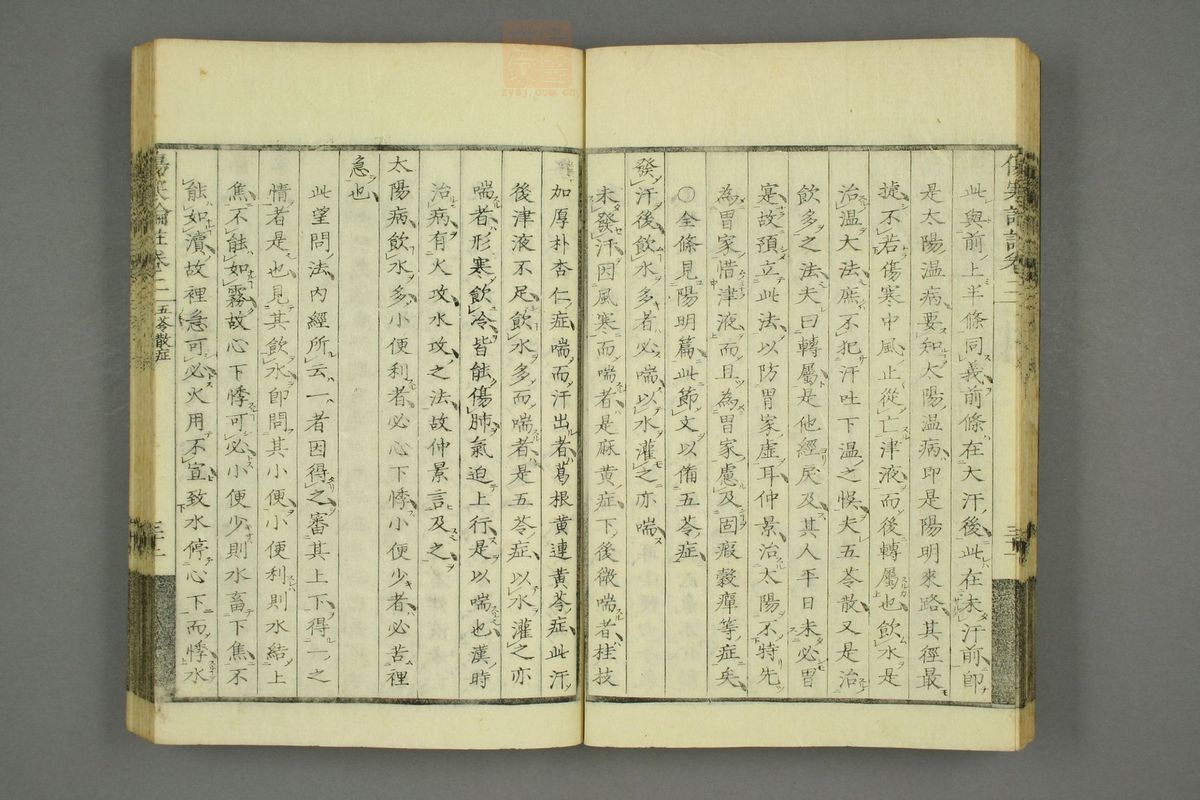 此與前上半條同義前條在大汗後此在未汗前卽
是太陽温病要知太陽温病卽是陽明來路其徑最
捷不若傷寒中風止從亡津液而後轉屬也飲水是
治温大法庶不犯汗吐下温之悞夫五苓散又是治
飲多之法夫曰轉屬是他經戻及其人平日未必胃
寔故預立此法以防胃家虚耳仲景治太陽不特先
為胃家惜津液而且為胃家慮及固瘕穀癉等症矣
○全條見陽明篇此節文以備五苓症
發汗後飲水多者必喘以水灌之亦喘
未發汗因風寒而喘者是麻黄症下後微喘者桂技
加厚朴杏仁症喘而汗出者葛根黄連黄芩症此汗
後津液不足飲水多而喘者是五苓症以水灌之亦
喘者形寒飲冷皆能傷肺氣迫上行是以喘也漢時
治病有火攻水攻之法故仲景言及之
太陽病飲水多小便利者必心下悸小便少者必苦裡
急也
此望問法内經所云一者因得之審其上下得一之
情者是也見其飲水卽問其小便小便利則水結上
焦不能如霧故心下悸可必小便少則水畜下焦不
能如瀆故裡急可必火用不宣致水停心下而悸水
傷寒論註卷二 五苓散症
三十二
zysj.com.cn